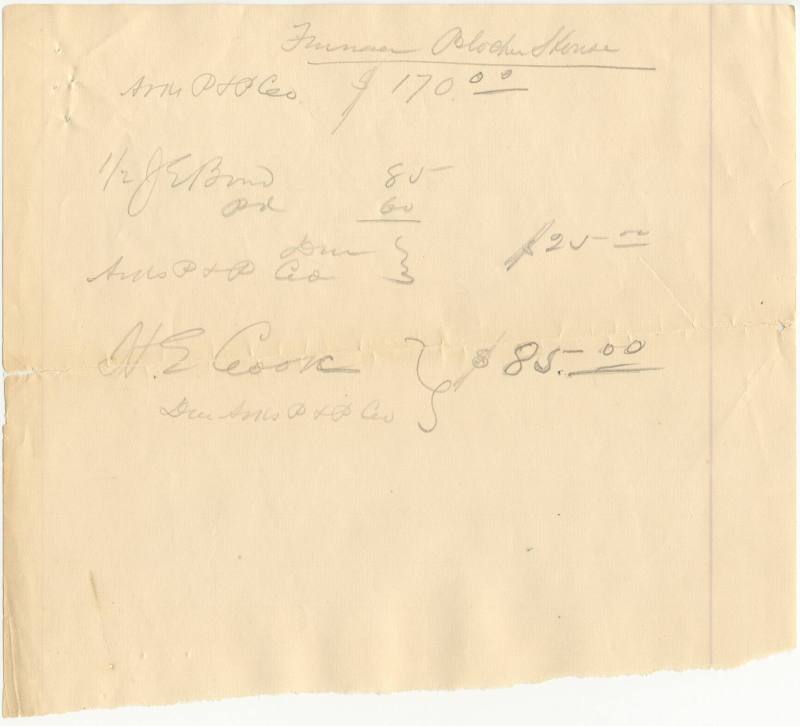 Furnace Blocher House
Arms P & P Co $170.00
1/2 J E Bond 85
Pd 60
Due
Arms P & P Co } $25.00
H. E Cook } $85.00
Due Arms P & P Co